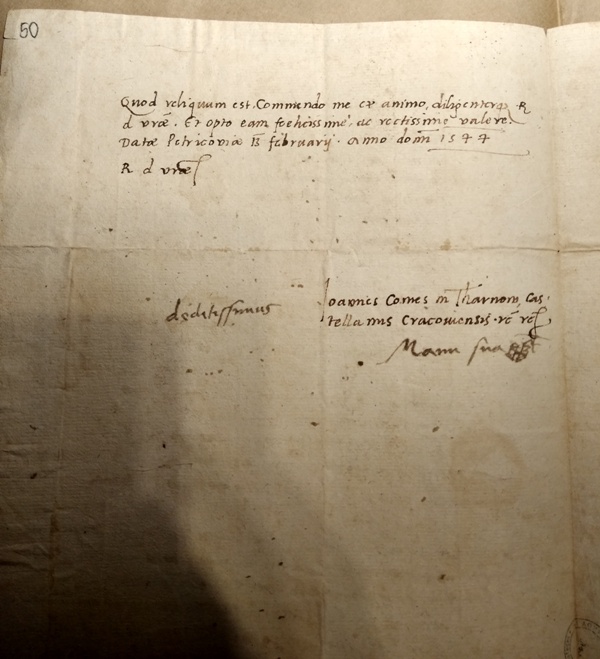 50
Quod reliquum est. Commendo me ex animo, diligenterq; R
d vræ. Et opto eam foelicissime, ac rectissime valere.
Datæ Petricoviæ 13 februarij. Anno dom̄ 1544
R d vræ
deditissimus
Joannes Comes in Tharnow, Cas-
tellanus Cracoviensis. rc̄ rc̄
Manu sua